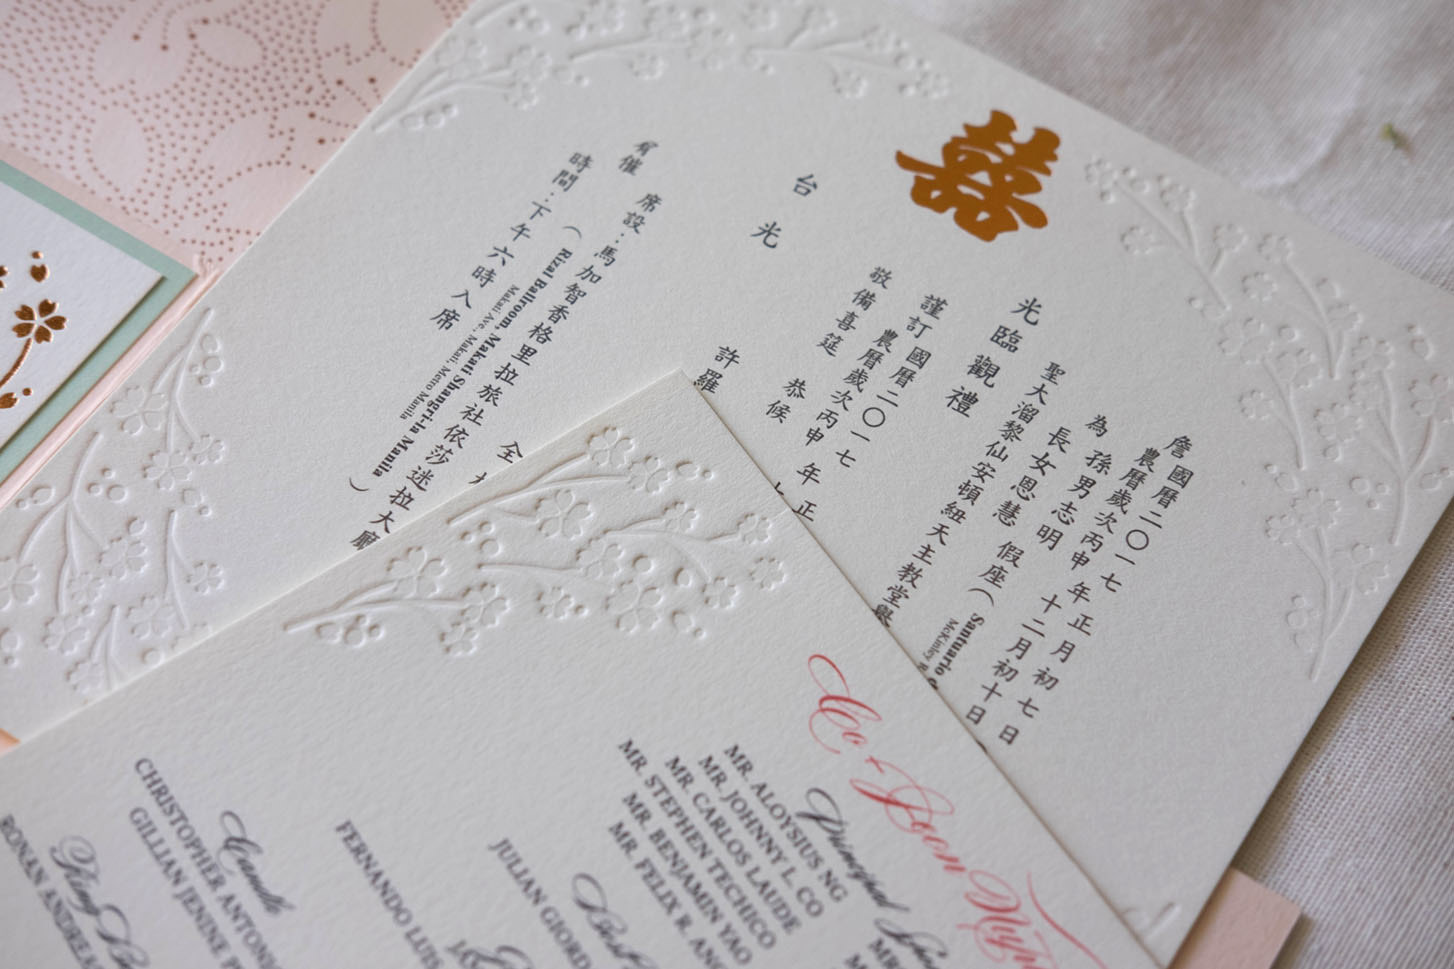 囍
詹國曆二〇一七年正月初七日
農曆歲次丙申年十二月初十日
為孫男志明
長女恩慧 假座 (Santuario
McKinley
聖大溜黎仙安頓紐天主教堂舉
光臨觀禮
謹訂國曆二〇一七年正
農曆歲次丙申
敬備喜筵 恭候
台光
許羅
全
席設：馬加智香格里拉旅社依莎迷拉大廳
(Rizal Ballroom, Makati Shangri-la Manila)
Makati Ave, Makati, Metro Manila
時間：下午六時入席
Co
Principal
MR. ALOYSIUS NG
MR. JOHNNY L. CO
MR. CARLOS LAUDE
MR. STEPHEN TECHICO
MR. BENJAMIN YAO
MR. FELIX R. ANG
Best
JULIAN GIORD
FERNANDO LUIS
Candle
CHRISTOPHER ANTON
GILLIAN JENNE P
Ring
RONAN ANDRE